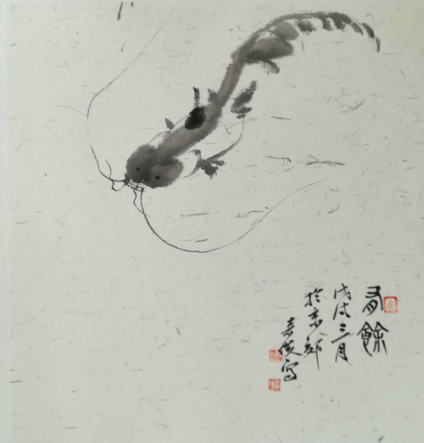 有餘
戊戌三月
於京郊
嘉俊写